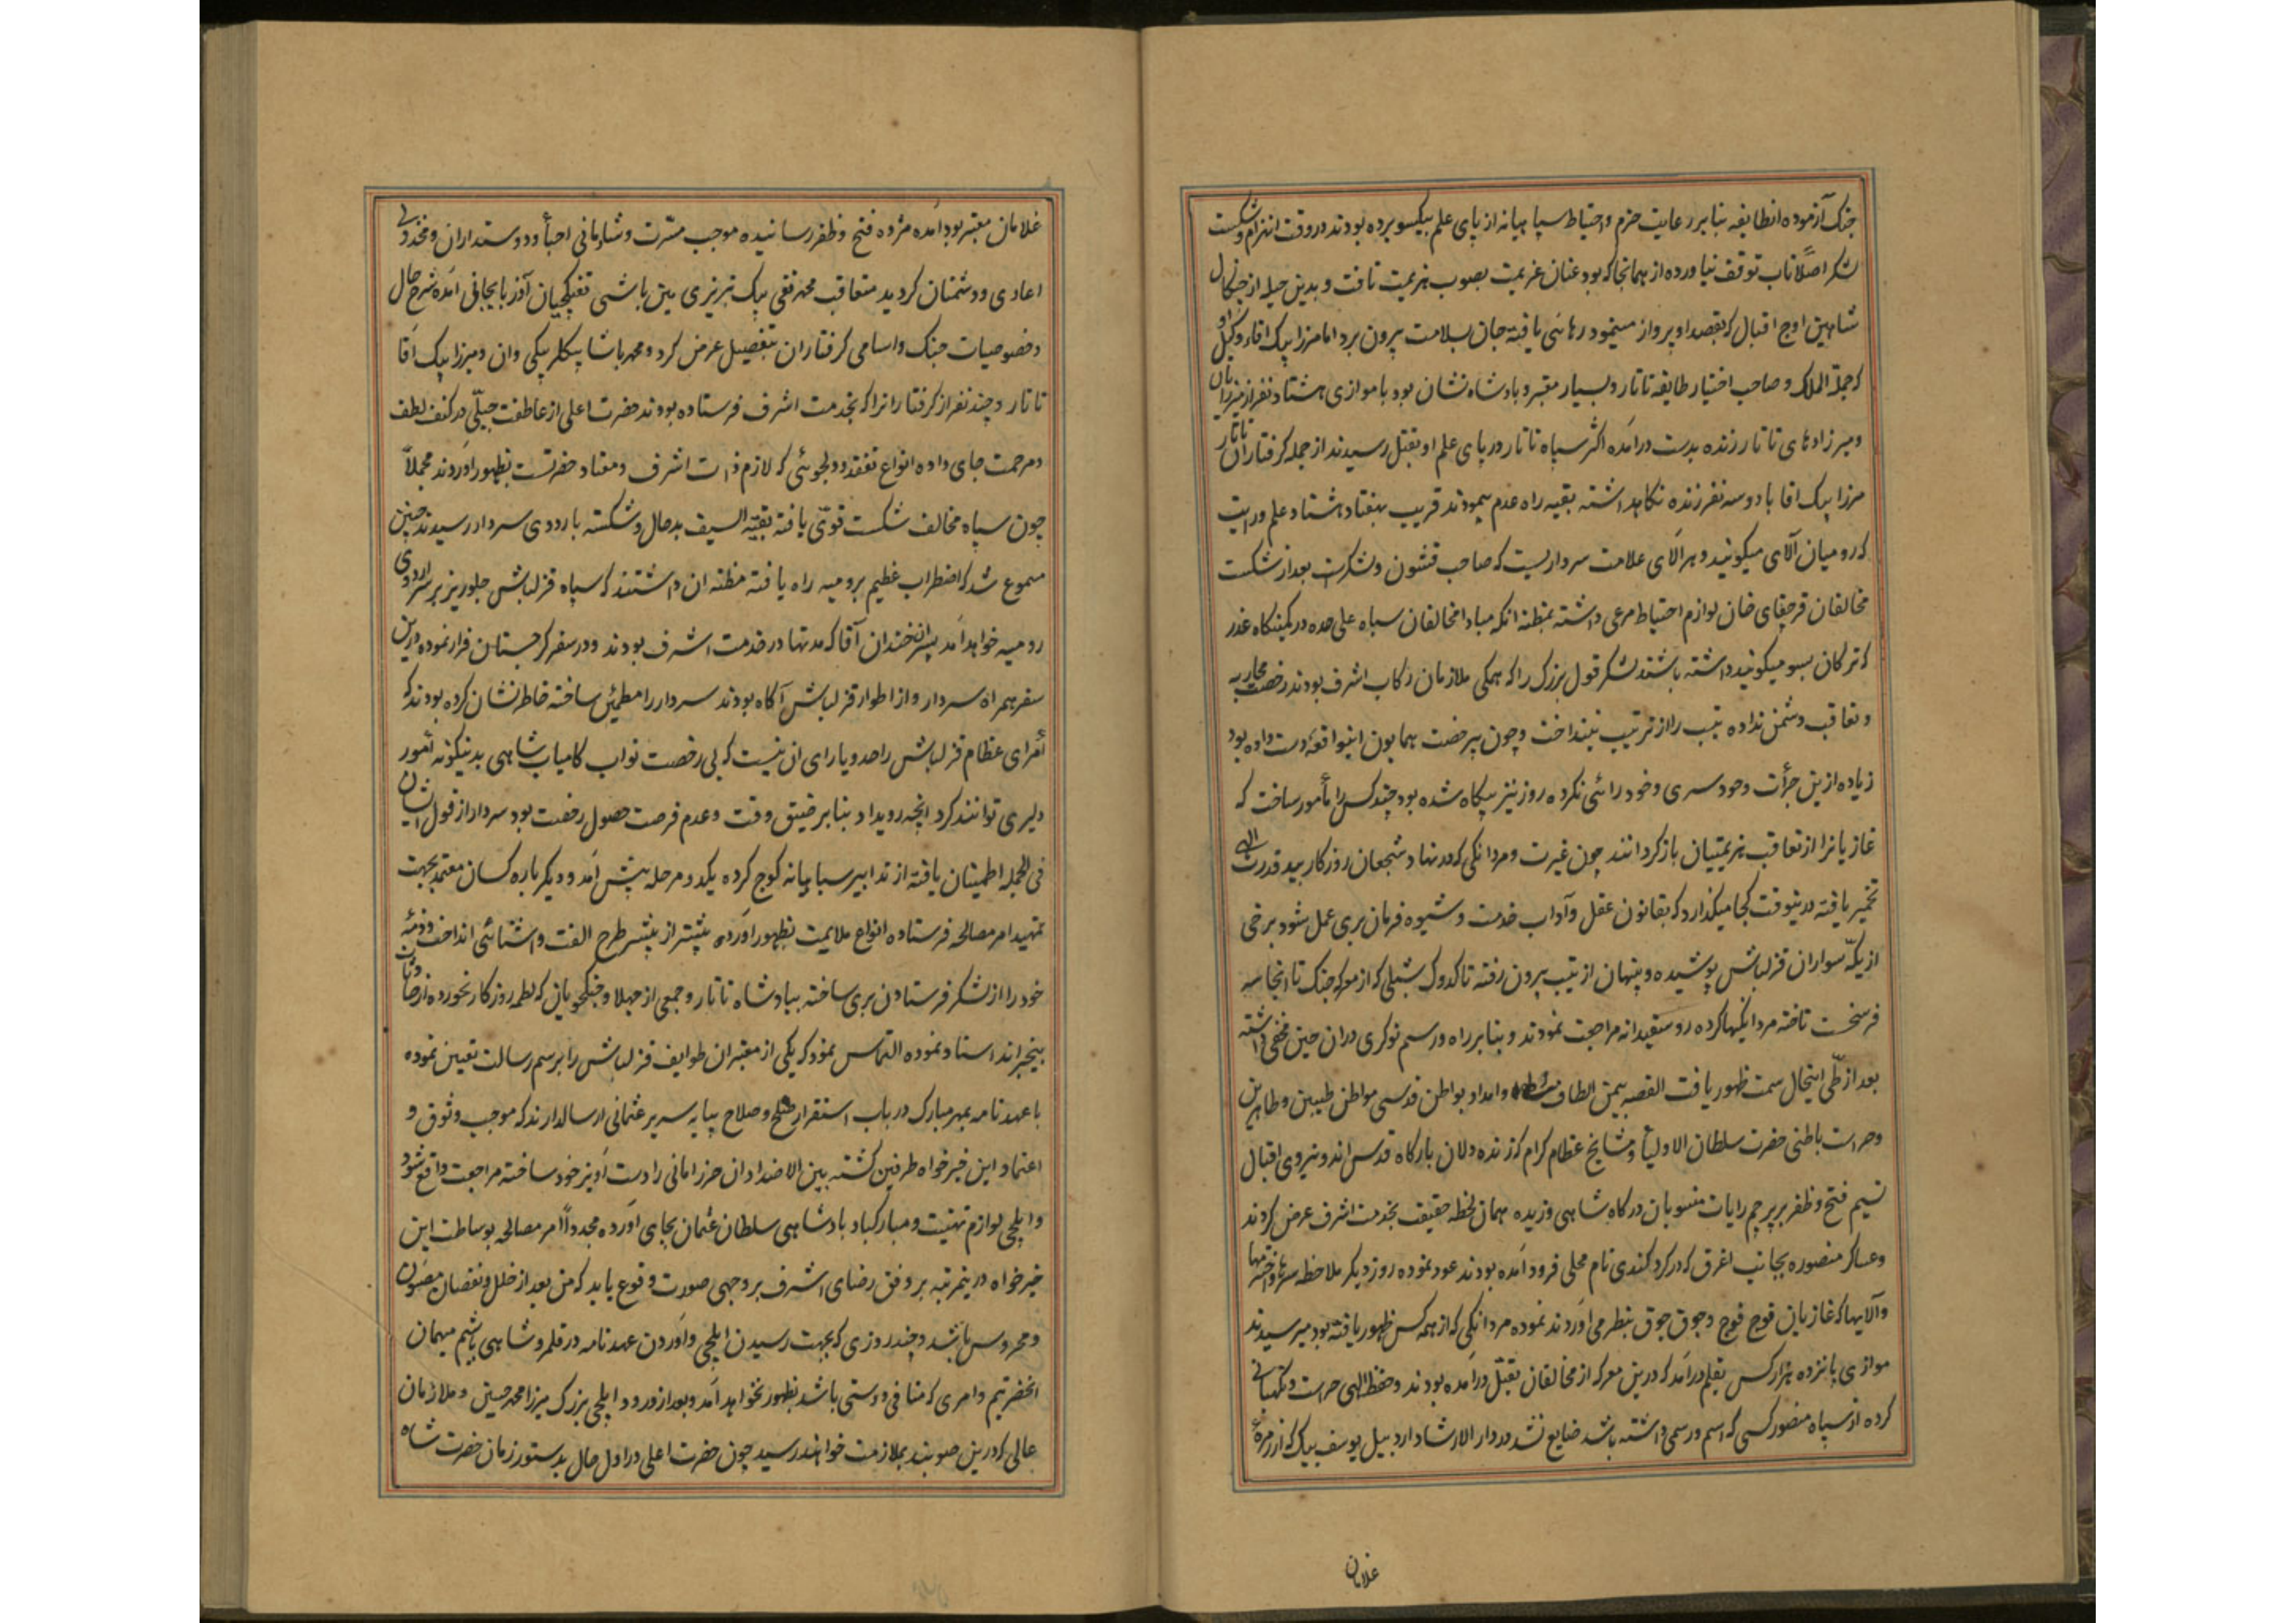 جنک آزموده انطایفه بنابر رعایت حزم و احتیاط سپاهیانه از پای علم بیکسو برده بودند در وقت انهزام و شکست
لشکر اصلا تاب توقف نیاورده از همانجا که بود عنان عزیمت بصوب هزیمت تافت و بدین حیله از چنکال
شاهین اوج اقبال که بقصد او پرواز مینمود رهائی یافته جان بسلامت بیرون برد اما میرزا بیک اقا وکیل او
که جملة الملک و صاحب اختیار طایفه تاتار و بسیار معتبر و بادشاه نشان بود با موازی هشتاد نفر از میرزایان
و میرزادهای تاتار زنده بدست درآمده اکثر سپاه تاتار در پای علم او بقتل رسیدند از جمله کرفتاران تاتار
میرزا بیک اقا با دو سه نفر زنده نکاهداشته بقیه راه عدم پیمودند قریب بهفتاد هشتاد علم و رایت
که رومیان آلای میکویند و هر آلای علامت سرداریست که صاحب قشون و لشکرست بعد از شکست
مخالفان قرچقای خان لوازم احتیاط مرعی داشته بمظنه انکه مبادا مخالفان سپاه علی حده در کمینکاه غدر
که ترکان بسو میکویند داشته باشند لشکر قول بزرک را که همکی ملازمان رکاب اشرف بودند رخصت محاربه
و تعاقب دشمن نداده تیپ را از ترتیب نینداخت و چون بیرخصت همایون اینواقعه دست داده بود
زیاده ازین جرأت و خود سری و خود رائی نکرده روز نیز بیکاه شده بود چند کس را مأمور ساخت که
غازیانرا از تعاقب هزیمتیان باز کردانند چون غیرت و مردانکی که در نهاد شجعان روزکار بید قدرت الهی
تخمیر یافته در ینوقت کجا میکذارد که بقانون عقل و آداب خدمت و شیوه فرمان بری عمل شود برخی
از یکه سواران قزلباش پوشیده و پنهان از تیپ بیرون رفته تا کدوک شبلی که از معرکه جنک تا انجا سه
فرسخست تاخته مردانکیها کرده روسفیدانه مراجعت نمودند و بنابر راه و رسم نوکری دران حین مخفی داشته
بعد از طی اینحال سمت ظهور یافت القصه بیمن الطاف و امداد بواطن قدسی مواطن طیبین و طاهرین
و حراست باطنی حضرت سلطان الاولیأ و مشایخ عظام کرام که زنده دلان بارکاه قدس اند و نیروی اقبال
نسیم فتح و ظفر بر پرچم رایات منسوبان درکاه شاهی وزیده همان لحظه حقیقت بخدمت اشرف عرض کردند
و عساکر منصوره بجانب اغرق که در کرد کندی نام محلی فرود آمده بودند عود نموده روز دیکر ملاحظه سرها و اخترمها
و آلایها که غازیان فوج فوج و جوق جوق بنظر می آوردند نموده مردانکی که از همه کس ظهور یافته بود میرسیدند
موازی پانزده هزار کس بقلم درآمد که درین معرکه از مخالفان بقتل درآمده بودند و حفظ الهی حراست و نکهبانی
کرده از سپاه منصور کسی که اسم و رسمی داشته باشد ضایع نشد در دار الارشاد اردبیل یوسف بیک که از زمرهٔ
غلامان
غلامان معتبر بود آمده مژده فتح و ظفر رسانیده موجب مسرت و شادمانی احبأ و دوستداران و مخذولی
اعادی و دشمنان کردید متعاقب محمد تقی بیک تبریزی مین باشی تفنکچیان آذربایجانی آمده شرح حال
و خصوصیات جنک و اسامی کرفتاران بتفصیل عرض کرد و محمد پاشا بیکلر بیکی وان و میرزا بیک آقا
تاتار و چند نفر از کرفتارانرا که بخدمت اشرف فرستاده بودند حضرت اعلی از عاطفت جبلّی در کنف لطف
و مرحمت جای داده انواع تفقد و دلجوئی که لازم ذات اشرف و معتاد حضرتست بظهور آوردند مجملاً
چون سپاه مخالف شکست قوّی یافته بقیّه السیف بدحال و شکسته باردوی سردار رسیدند چنین
مسموع شد که اضطراب عظیم برومیه راه یافته مظنه ان داشتند که سپاه قزلباش جلوریز بر سر اردوی
رومیه خواهد آمد پسران خندان آقا که مدتها در خدمت اشرف بودند و در سفر کرجستان فرار نموده درین
سفر همراه سردار و از اطوار قزلباش آکاه بودند سردار را مطمئن ساخته خاطر نشان کرده بودند که
اُمرای عظام قزلباش را حد و یارای ان نیست که بی رخصت نواب کامیاب شاهی بدینکونه اُمور
دلیری توانند کرد انچه رویداد بنابر ضیق وقت و عدم فرصت حصول رخصت بود سردار از قول ایشان
فی الجمله اطمینان یافته از تدابیر سپاهیانه کوچ کرده یکدو مرحله پیش آمد و دیکر باره کسان معتمد بجهت
تمهید امر مصالحه فرستاده انواع ملایمت بظهور آورده بیشتر از پیشتر طرح الفت و آشنائی انداخت و ذمّه
خود را از لشکر فرستادن بری ساخته بپادشاه تاتار و جمعی از جهلا و جنکجویان که لطمه روزکار نخورده از
بیخبراند اسناد نموده التماس نمود که یکی از معتبران طوایف قزلباش را برسم رسالت تعیین نموده
با عهدنامه بمهر مبارک در باب استقرار صلح و صلاح بپایه سریر عثمانی ارسال دارند که موجب وثوق و
اعتماد این خیرخواه طرفین کشته بین الاضداد ان حرز امانی را دست آویز خود ساخته مراجعت واقع شود
و ایلچی لوازم تهنیت و مبارکباد بادشاهی سلطان عثمان بجای آورده مجدداً امر مصالحه بوساطت این
خیرخواه درینمرتبه بر وفق رضای اشرف بر وجهی صورت وقوع یابد که من بعد از خلل و نقصان مصون
و محروس باشد و چند روزی که بجهت رسیدن ایلچی و آوردن عهدنامه در قلمرو شاهی باشیم میهمان
انحضرتیم و امری که منافی دوستی باشد بظهور نخواهد آمد و بعد از ورود ایلچی بزرک میرزا محمد حسین و ملازمان
عالی که درین صوبند بملازمت خواهند رسید چون حضرت اعلی در اول حال بدستور زمان حضرت شاه